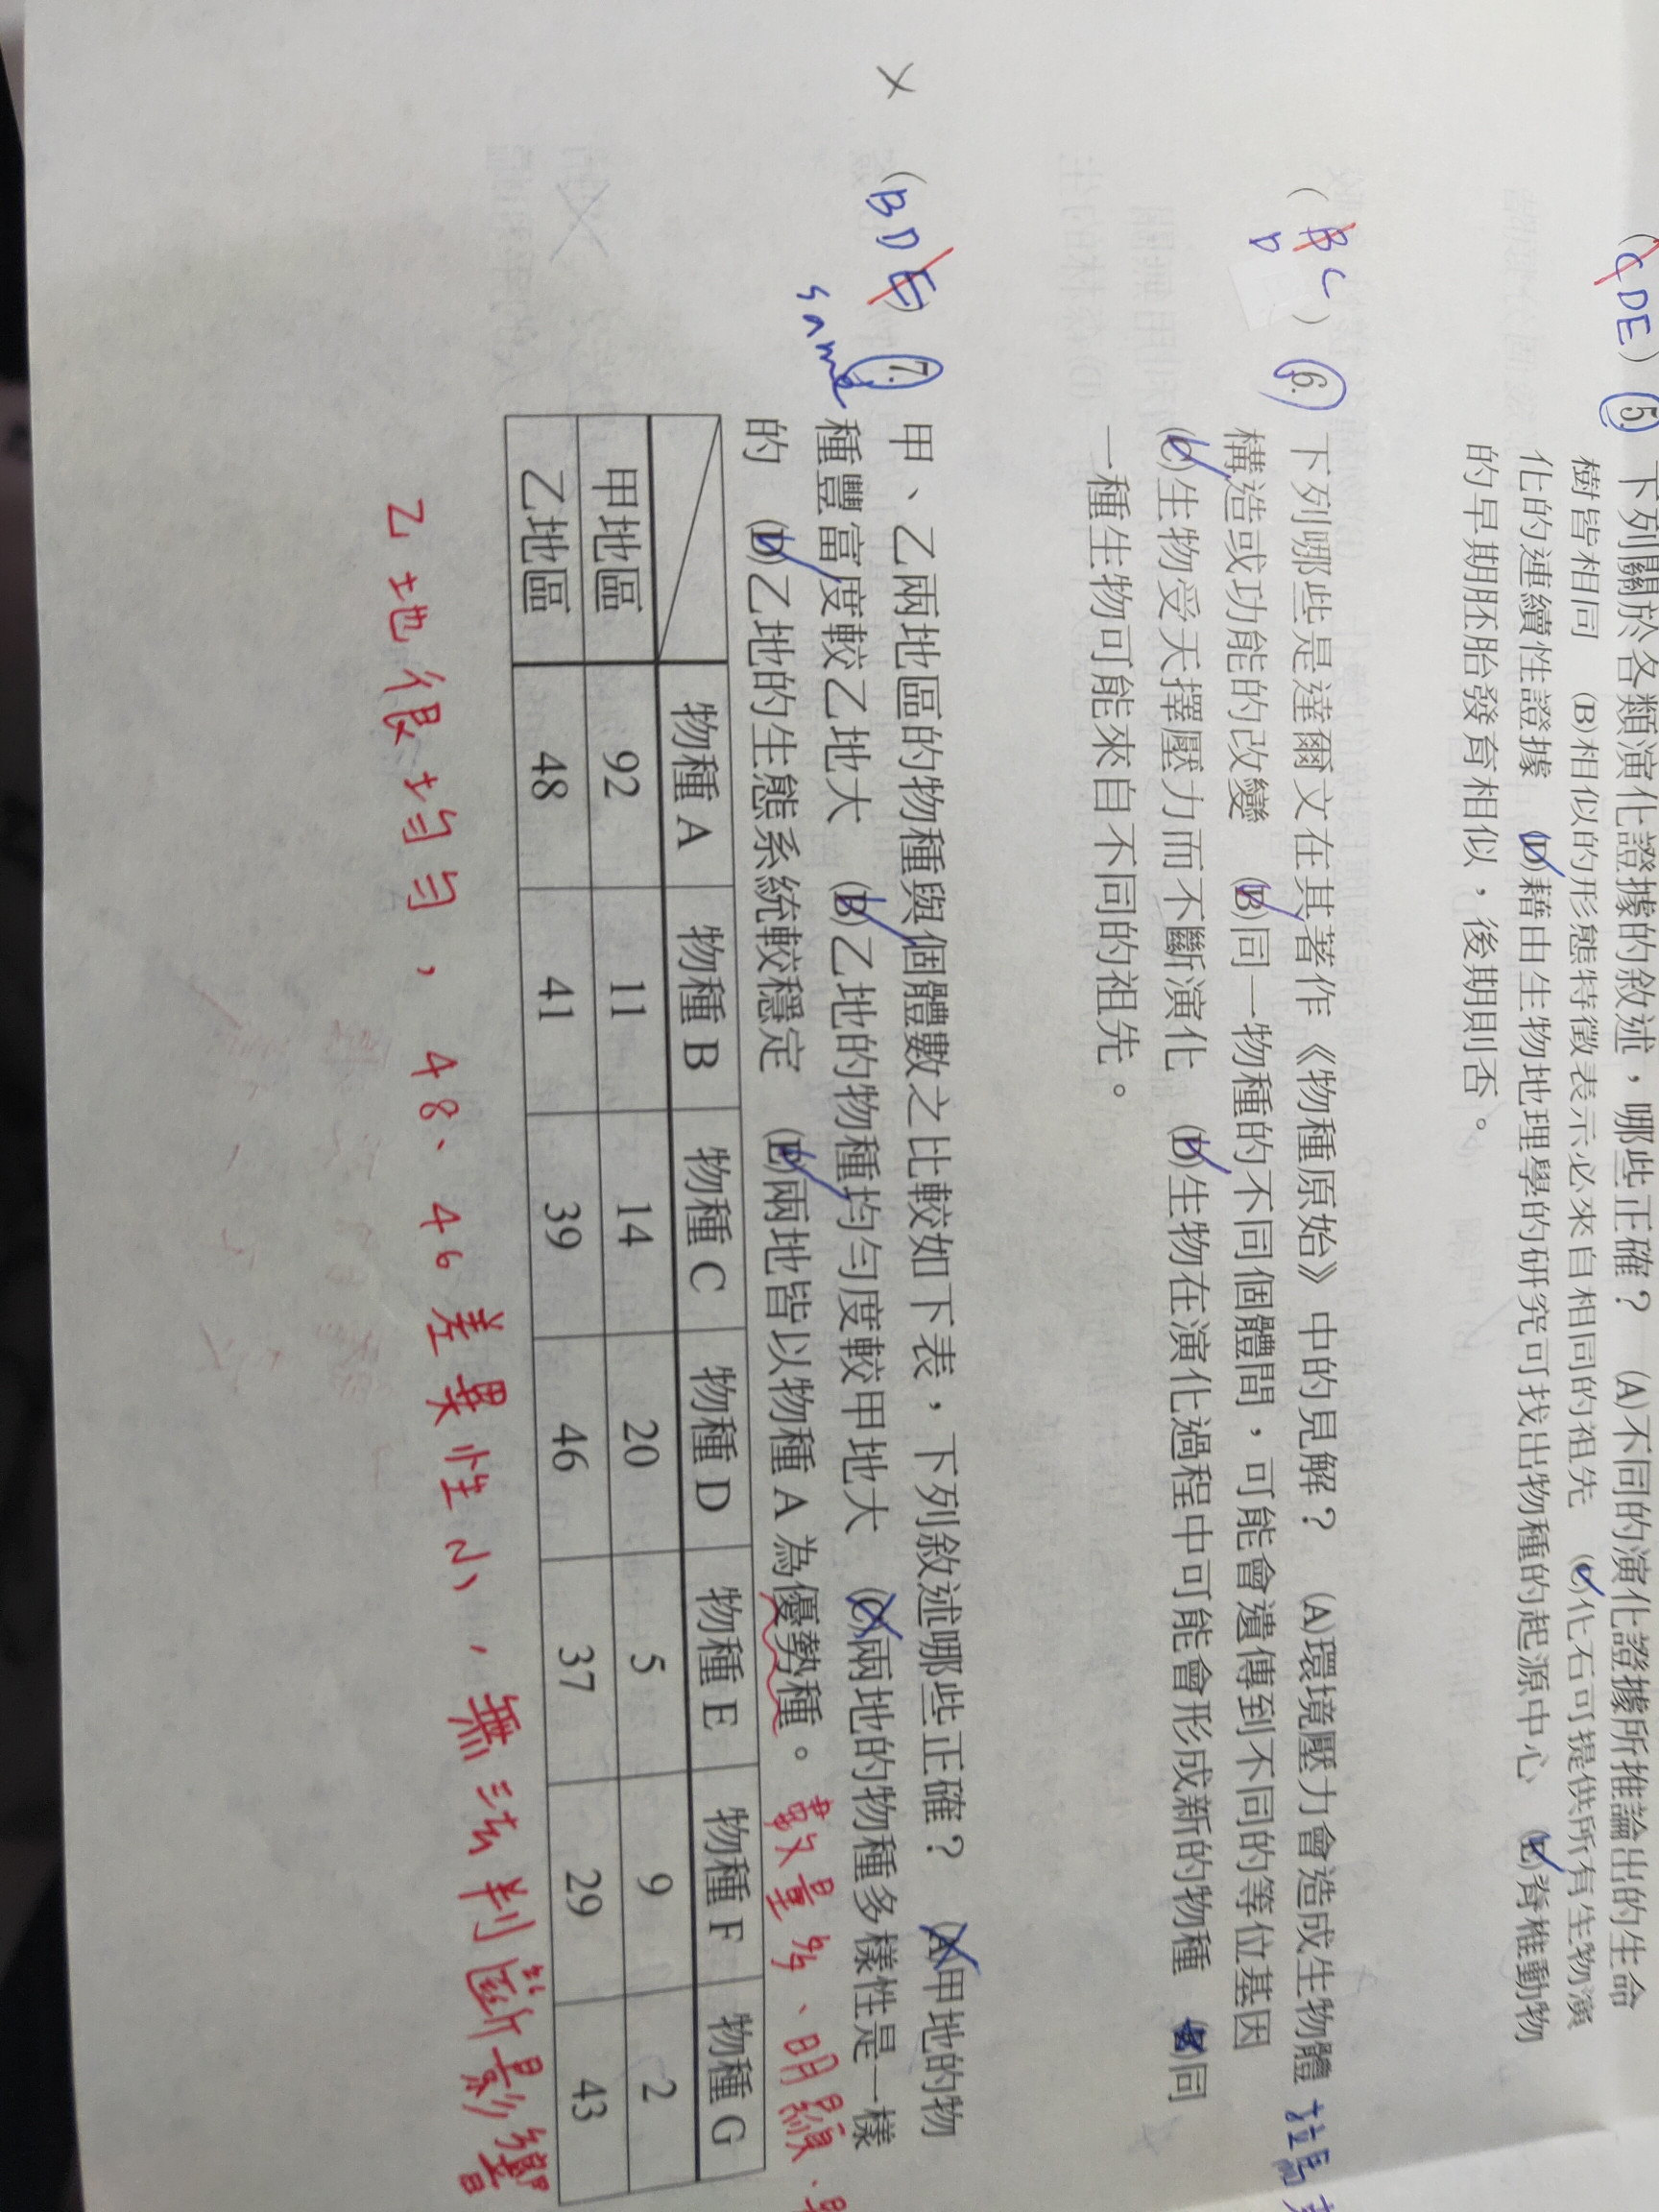 (CDE) 5. 下列關於各類演化證據的敘述，哪些正確？ (A)不同的演化證據所推論出的生命
樹皆相同 (B)相似的形態特徵表示必來自相同的祖先 (C)化石可提供所有生物演
化的連續性證據 (D)藉由生物地理學的研究可找出物種的起源中心 (E)脊椎動物
的早期胚胎發育相似，後期則否。
(BC) 6. 下列哪些是達爾文在其著作《物種原始》中的見解？ (A)環境壓力會造成生物體
D
構造或功能的改變 (B)同一物種的不同個體間，可能會遺傳到不同的等位基因
(C)生物受天擇壓力而不斷演化 (D)生物在演化過程中可能會形成新的物種 (E)同
一種生物可能來自不同的祖先。
(BDE) 7. 甲、乙兩地區的物種與個體數之比較如下表，下列敘述哪些正確？ (A)甲地的物
same
種豐富度較乙地大 (B)乙地的物種均勻度較甲地大 (C)兩地的物種多樣性是一樣
的 (D)乙地的生態系統較穩定 (E)兩地皆以物種 A 為優勢種。 數量多、明顯
物種 A 物種 B 物種 C 物種 D 物種 E 物種 F 物種 G
甲地區 92 11 14 20 5 9 2
乙地區 48 41 39 46 37 29 43
乙地很均勻，48、46差異性小，無法判斷影響